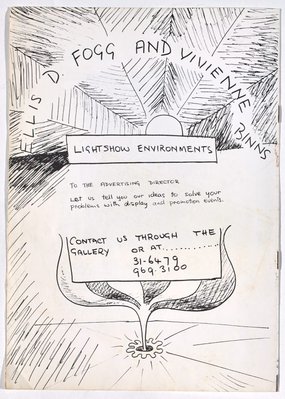 ELLIS D. FOGG AND VIVIENNE BINNS
LIGHTSHOW ENVIRONMENTS
TO THE ADVERTISING DIRECTOR
Let us tell you our ideas to solve your
problems with display and promotion events.
CONTACT US THROUGH THE
GALLERY OR AT..............
31-6479
969.3100